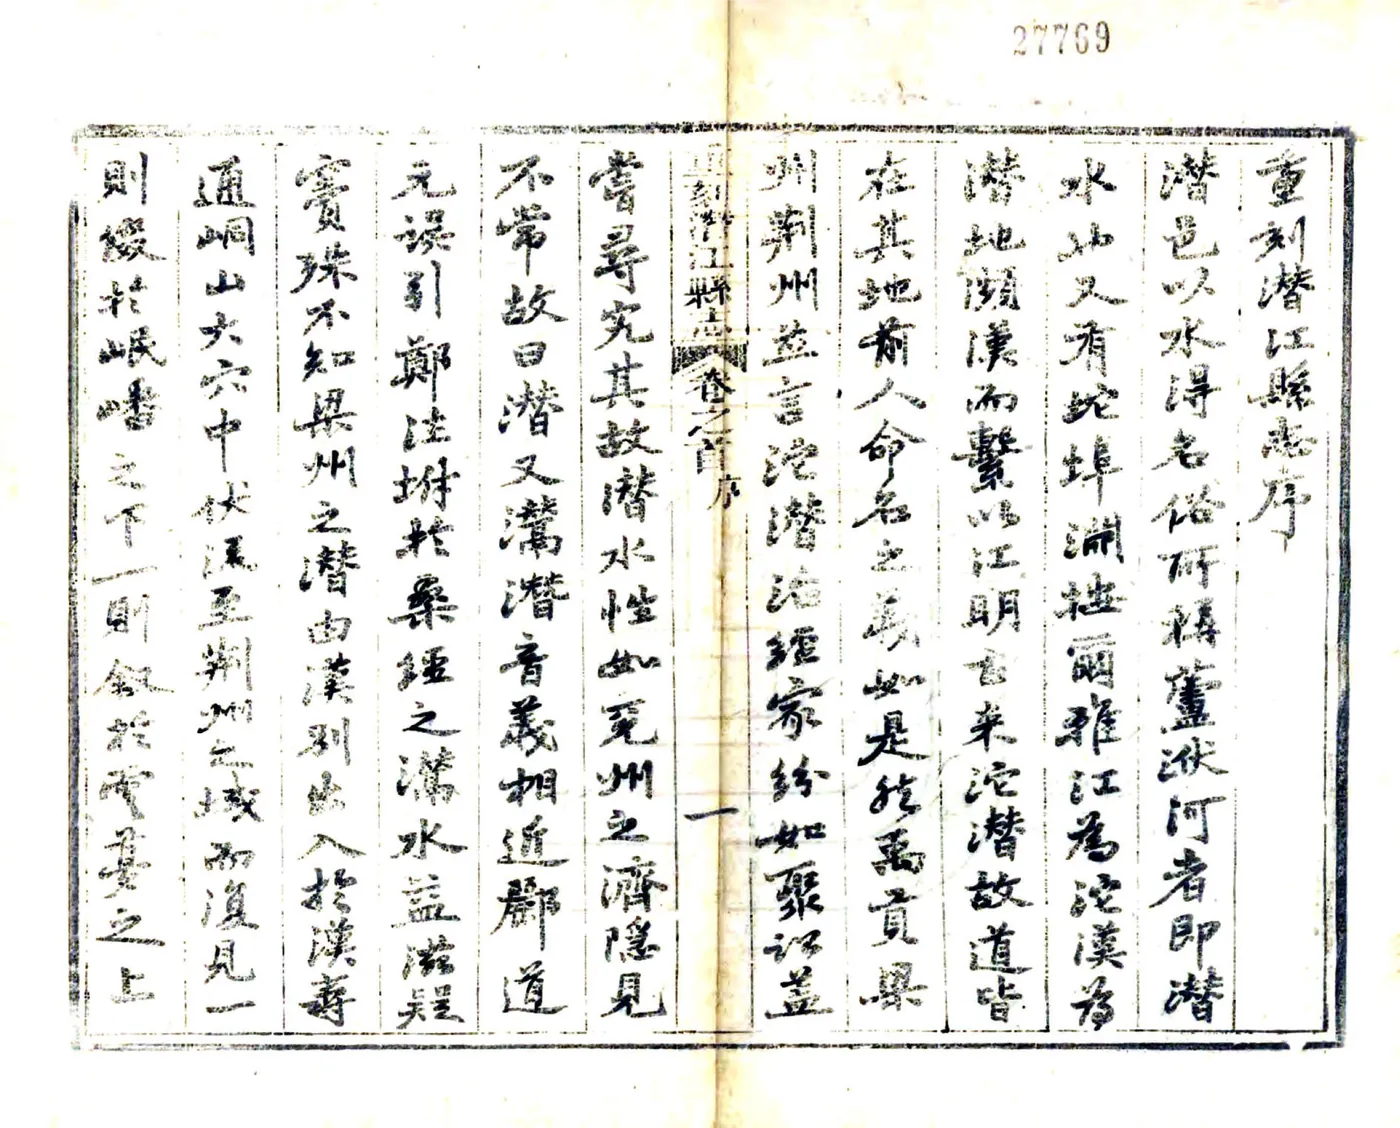 27769
重刻潛江縣志序
潛邑以水得名俗所稱蘆洑河者即潛
水也又有坨埠淵搓爾雅江為沱漢為
潛地瀕漢而繫以江明古来沱潛故道皆
在其地前人命名之義如是然禹貢梁
州荆州並言沱潛治經家紛如聚訟蓋
重刻潛江縣志 卷之首 序 一
嘗尋究其故潛水性如兗州之濟隱見
不常故曰潛又灊潛音義相近酈道
元误引鄭注坿於桑經之灊水益滋疑
竇殊不知梁州之潛由漢別出入於漢壽
通峒山大穴中伏流至荆州之域而復見一
則綴於岷嶓之下一則叙於雲夢之上